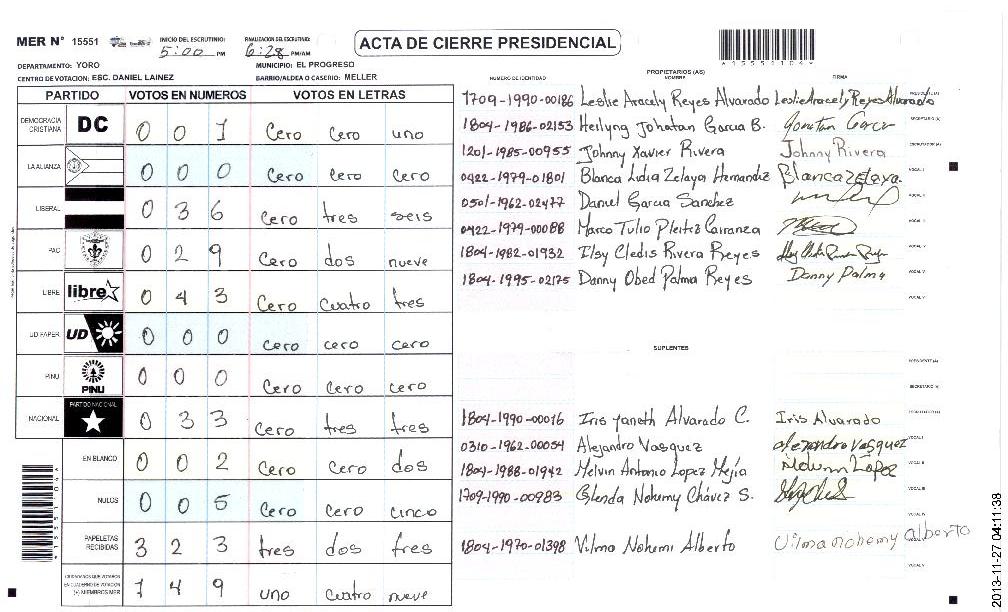 MER N° 15551 INICIO DEL ESCRUTINIO: 5:00 PM FINALIZACION DEL ESCRUTINIO: 6:28 PM/AM
ACTA DE CIERRE PRESIDENCIAL
DEPARTAMENTO: YORO MUNICIPIO: EL PROGRESO
CENTRO DE VOTACION: ESC. DANIEL LAINEZ BARRIO/ALDEA O CASERIO: MELLER
PARTIDO VOTOS EN NUMEROS VOTOS EN LETRAS
DEMOCRACIA CRISTIANA DC 0 0 1 Cero Cero uno
LA ALIANZA 0 0 0 Cero Cero Cero
LIBERAL 0 3 6 Cero tres seis
PAC 0 2 9 Cero dos nueve
LIBRE libre 0 4 3 Cero Cuatro tres
UD FAPER UD 0 0 0 Cero cero cero
PINU PINU 0 0 0 Cero Cero cero
NACIONAL PARTIDO NACIONAL 0 3 3 Cero tres tres
EN BLANCO 0 0 2 Cero Cero dos
NULOS 0 0 5 Cero Cero cinco
PAPELETAS RECIBIDAS 3 2 3 tres dos tres
CIUDADANOS QUE VOTARON EN CUADERNO DE VOTACION (+) MIEMBROS MER 1 4 9 uno Cuatro nueve
PROPIETARIOS (AS)
NUMERO DE IDENTIDAD NOMBRE FIRMA
1709-1990-00186 Leslie Aracely Reyes Alvarado Leslie Aracely Reyes Alvarado PRESIDENTE (A)
1804-1986-02153 Herlyng Johatan Garcia B. Jonatan Garcia SECRETARIO (A)
1201-1985-00955 Johnny Xavier Rivera Johnny Rivera ESCRUTADOR (A)
0422-1979-01801 Blanca Lidia Zelaya Hernandez Blanca Zelaya. VOCAL I
0501-1962-02477 Daniel Garcia Sanchez VOCAL II
0422-1979-00088 Marco Tulio Pleitez Carranza VOCAL III
1804-1982-01932 Ilsy Cledis Rivera Reyes VOCAL IV
1804-1995-02175 Danny Obed Palma Reyes Danny Palma VOCAL V
SUPLENTES
PRESIDENTE (A)
SECRETARIO (A)
1804-1990-00016 Iris Yaneth Alvarado C. Iris Alvarado ESCRUTADOR (A)
0310-1962-00054 Alejandro Vasquez Alejandro Vasquez VOCAL I
1804-1988-01942 Melvin Antonio Lopez Mejía Melvin Lopez VOCAL II
1709-1990-00983 Glenda Nohemy Chávez S. VOCAL III
VOCAL IV
1804-1970-01398 Vilma Nohemi Alberto Vilma nohemy Alberto
2013-11-27 04:11:38